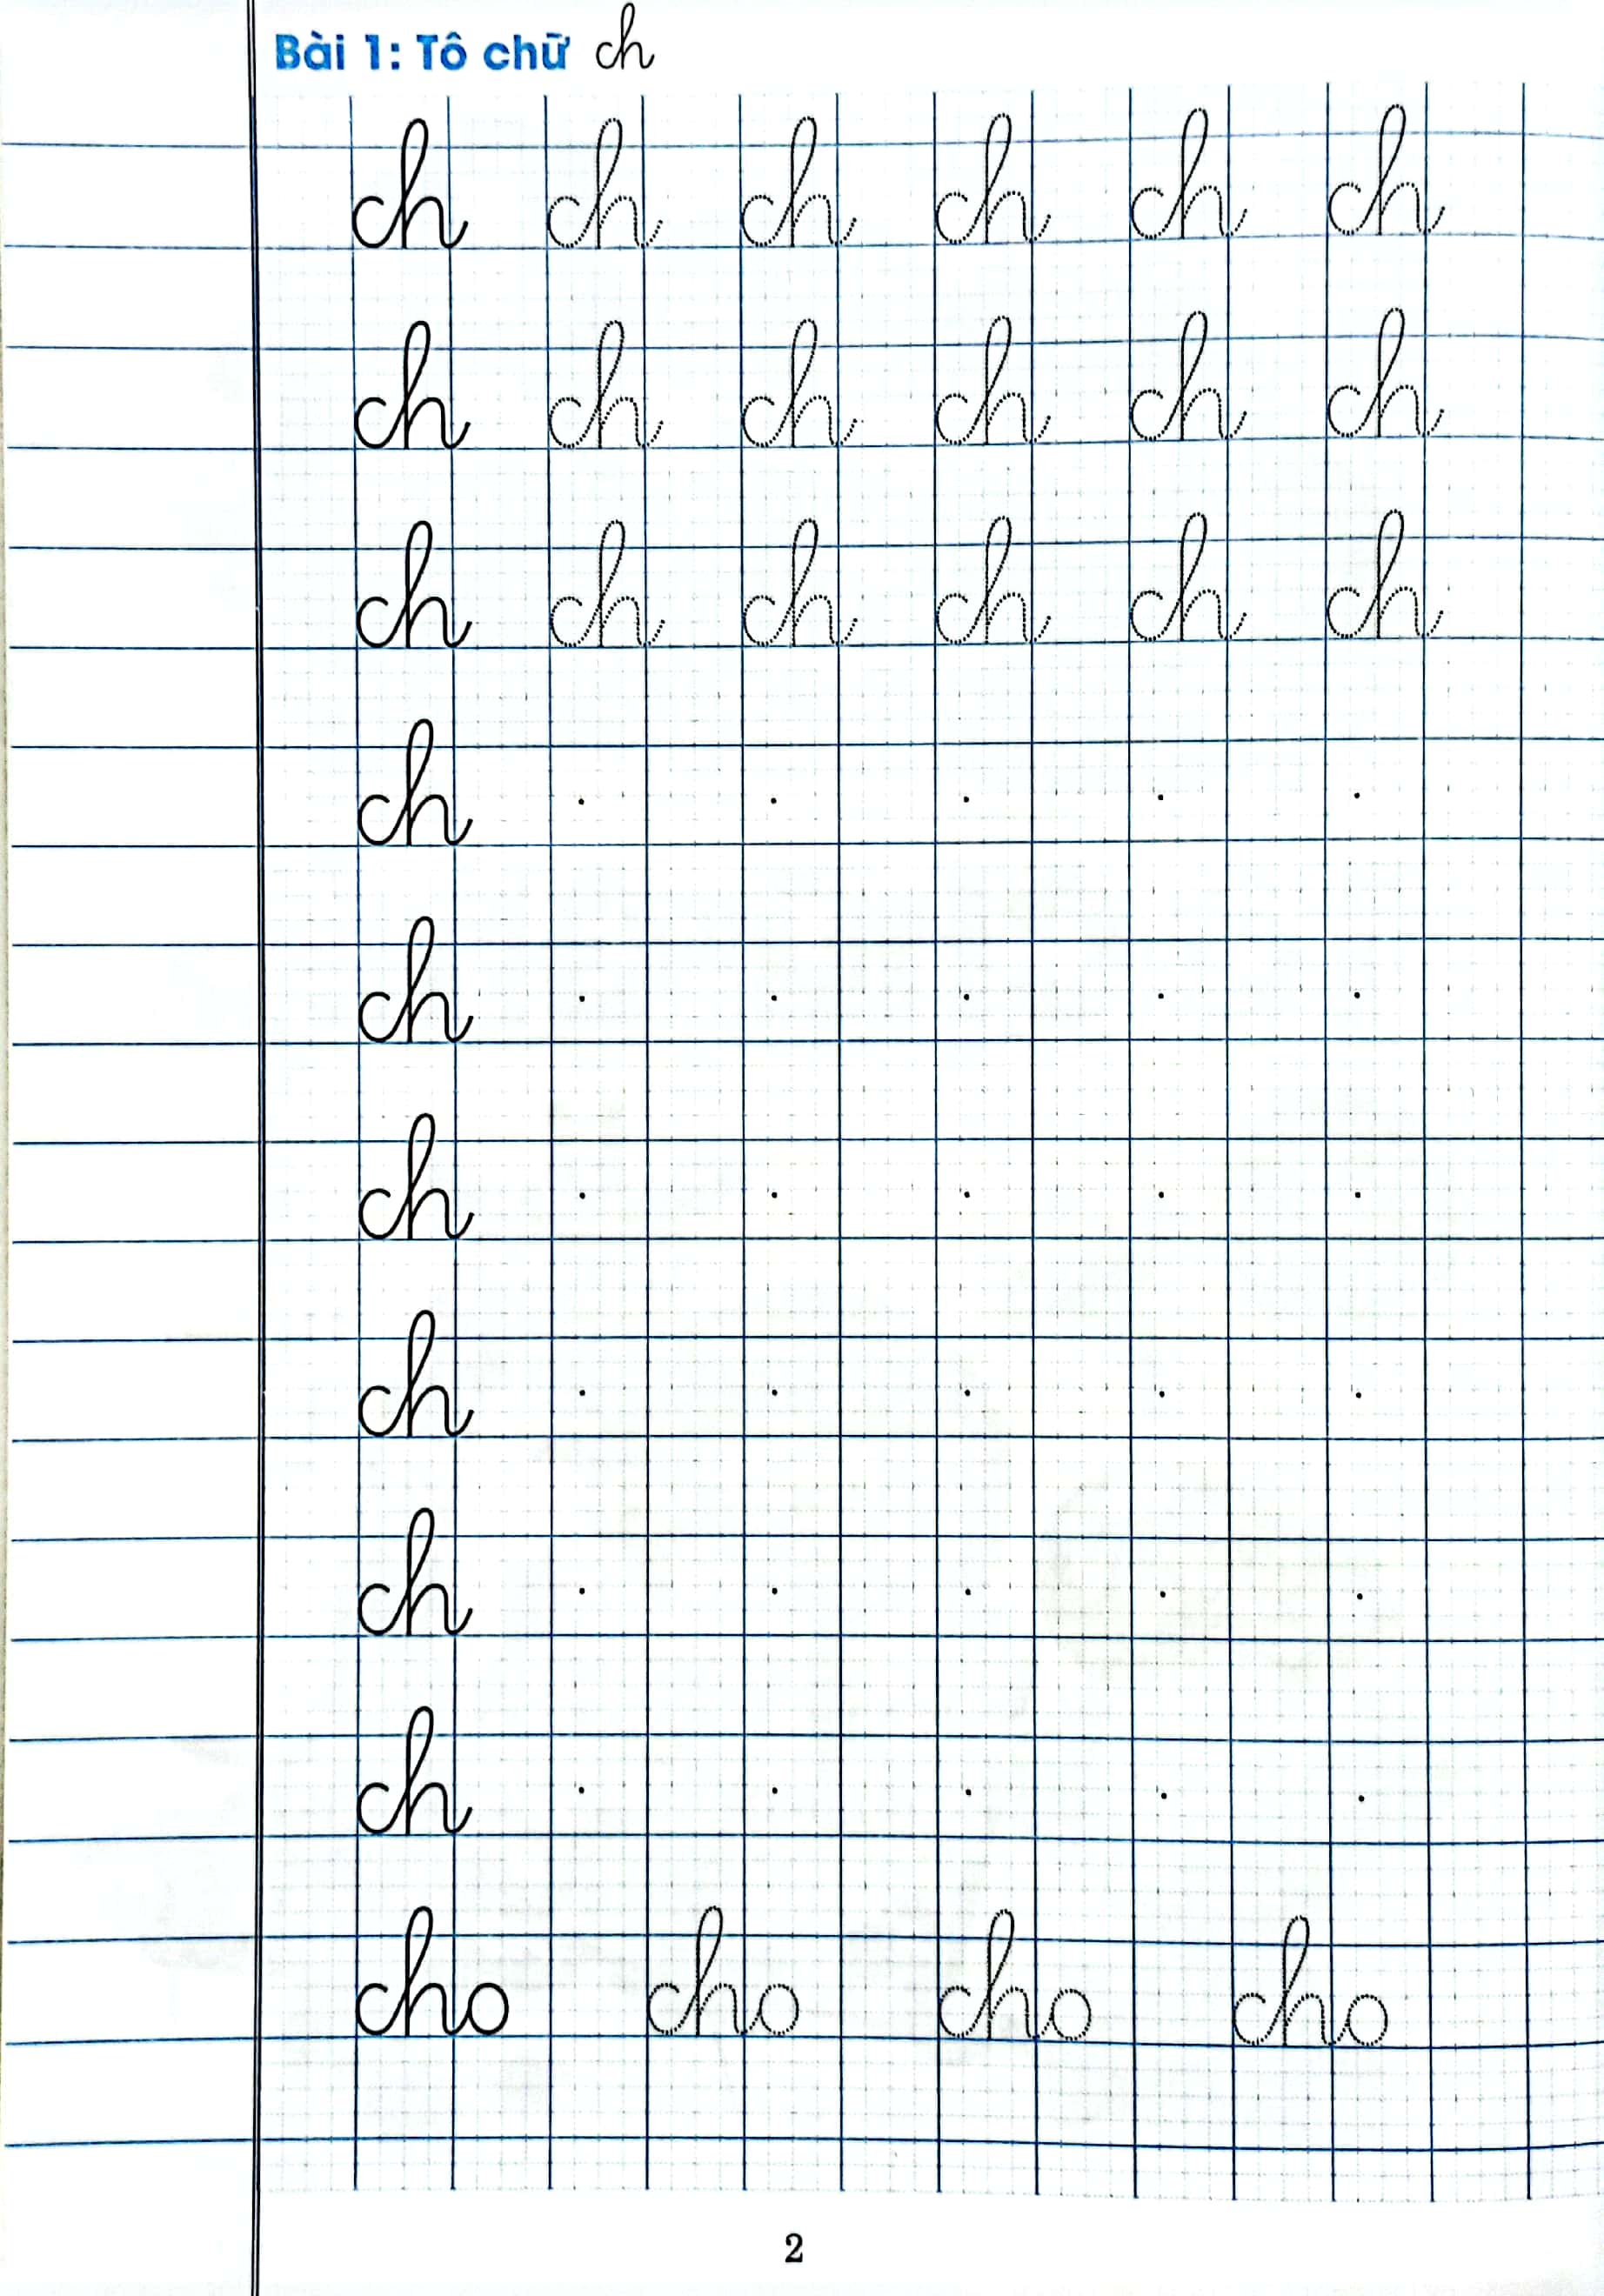 Bài 1: Tô chữ ch
ch ch ch ch ch ch
ch ch ch ch ch ch
ch ch ch ch ch ch
ch . . . . .
ch . . . . .
ch . . . . .
ch . . . . .
ch . . . . .
ch . . . . .
cho cho cho cho
2